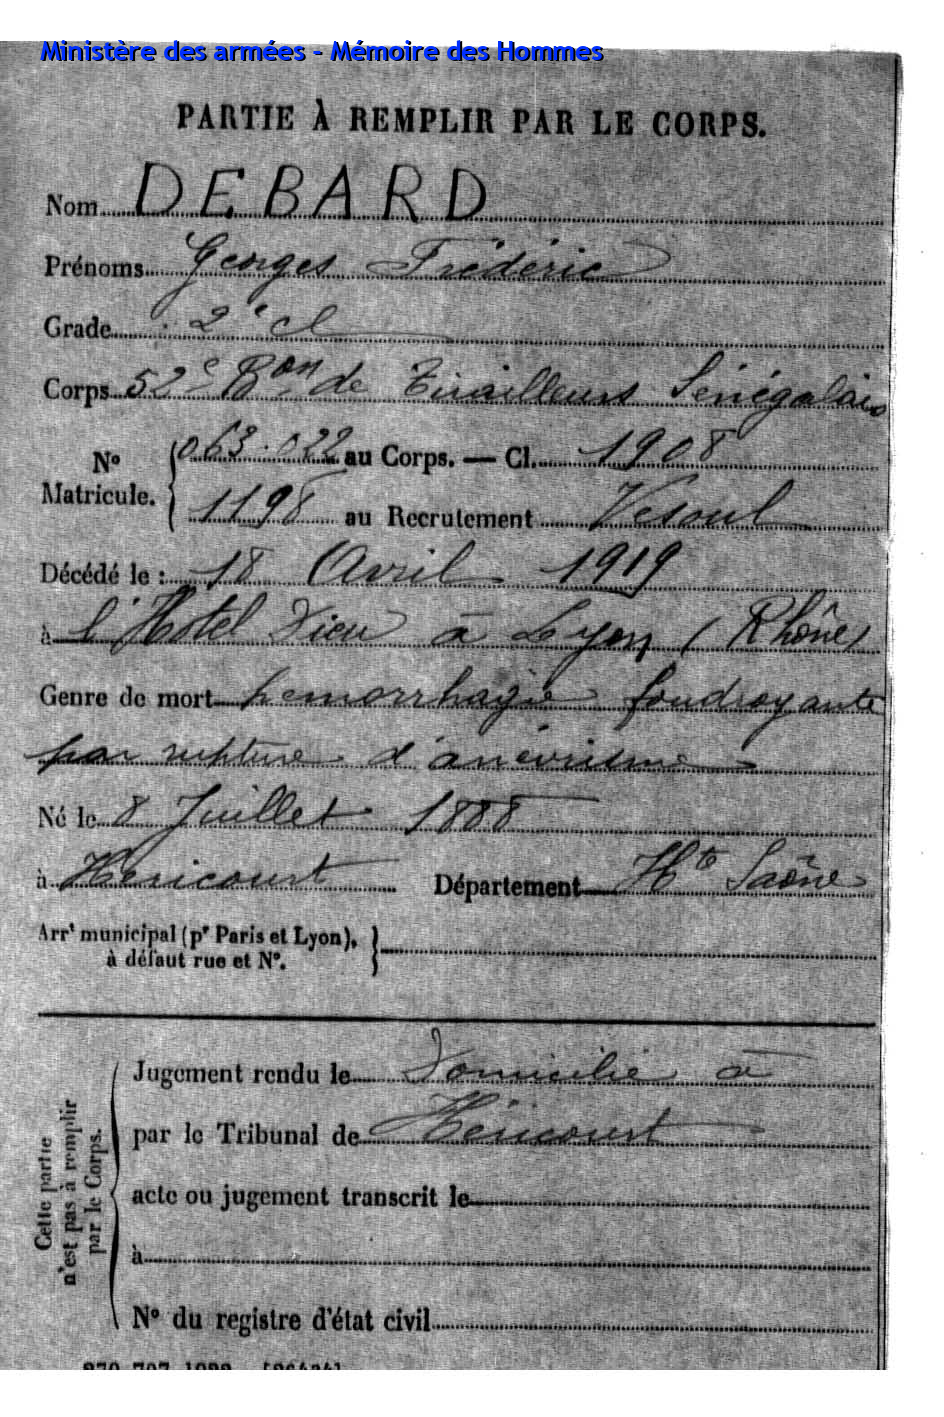 Ministère des armées - Mémoire des Hommes
PARTIE À REMPLIR PAR LE CORPS.
Nom DEBARD
Prénoms Georges Frédéric
Grade : 2e cl
Corps 52e Bon de Tirailleurs Sénégalais
No Matricule. { 063.022 au Corps. — Cl. 1908
1198 au Recrutement Vesoul
Décédé le : 18 Avril 1919
à l'Hotel Dieu à Lyon (Rhône)
Genre de mort hemorrhagie foudroyante
par rupture d'anévrisme
Né le 8 Juillet 1888
à Héricourt Département Hte Saône
Arrt municipal (pr Paris et Lyon), à défaut rue et No. }
Cette partie n'est pas à remplir par le Corps.
Jugement rendu le Domicilié à
par le Tribunal de Héricourt
acte ou jugement transcrit le
à
No du registre d'état civil